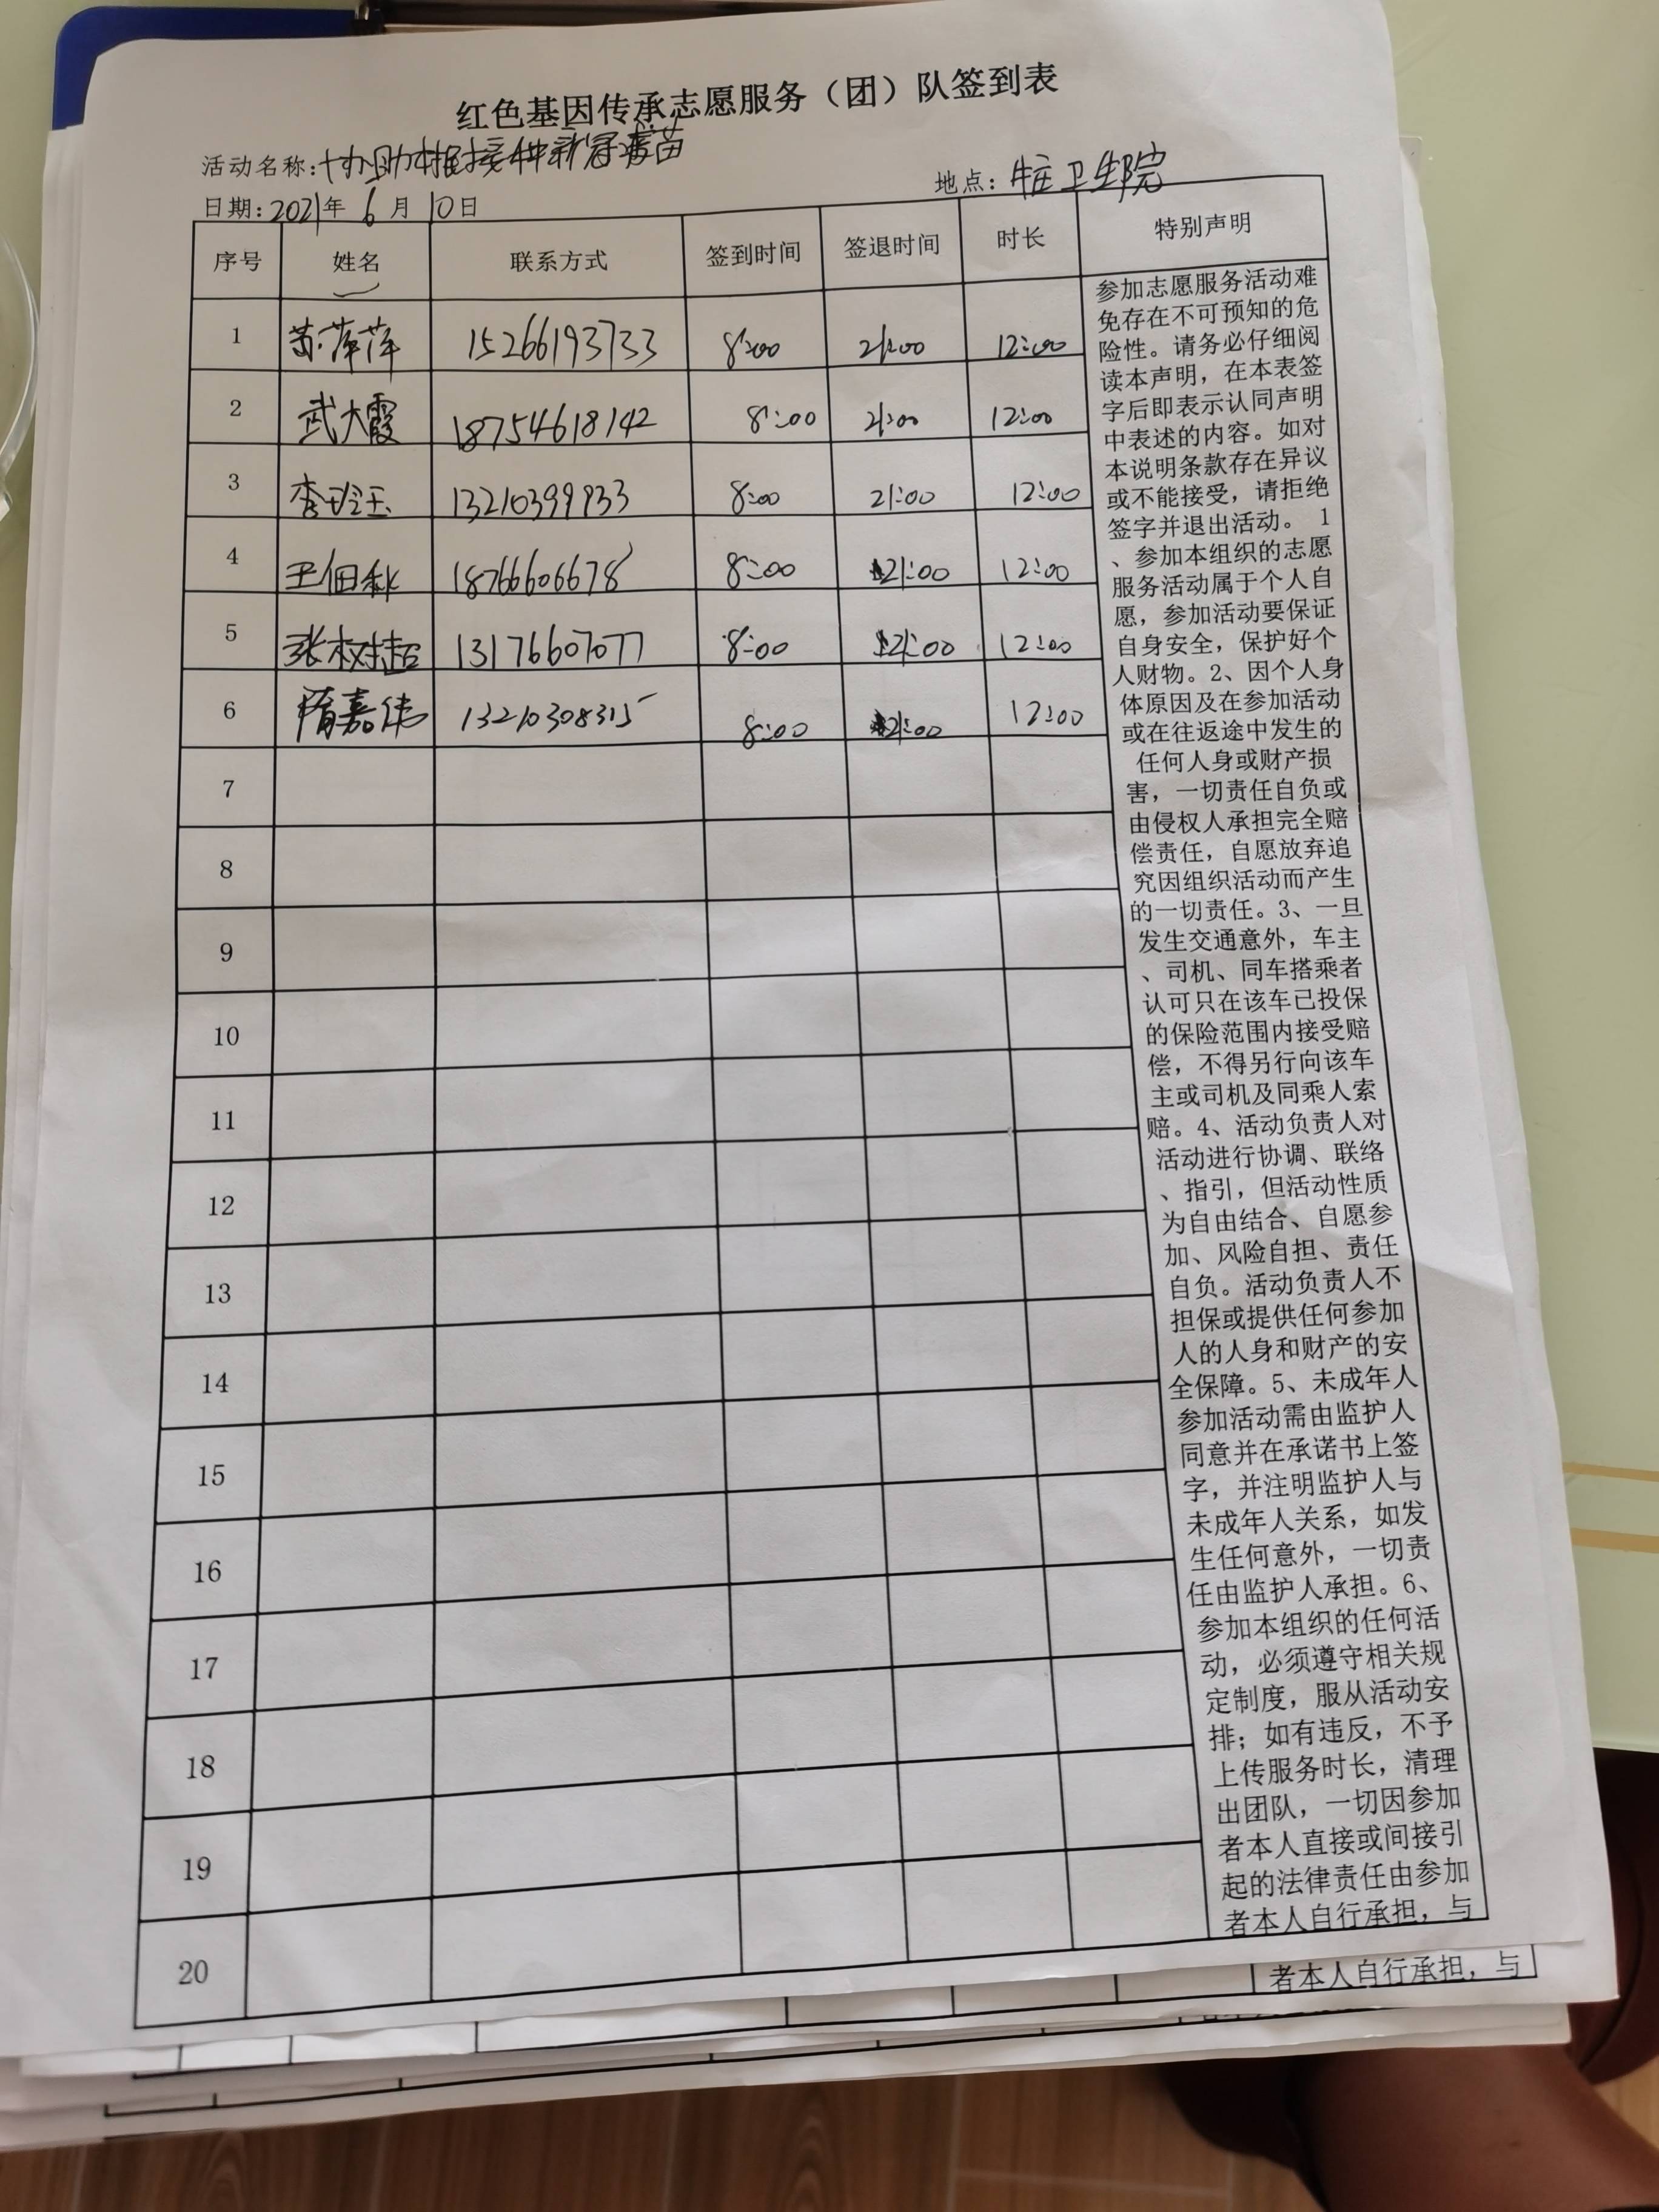 红色基因传承志愿服务（团）队签到表
活动名称:协助本推接种新冠疫苗
地点: 牛庄卫生院
日期: 2021年 6 月 10日
序号 姓名 联系方式 签到时间 签退时间 时长 特别声明
1 苏萍萍 15266193733 8:00 21:00 12:00
2 武大霞 18754618142 8:00 21:00 12:00
3 李玲玉 13210399933 8:00 21:00 12:00
4 王佃秋 18766606678 8:00 21:00 12:00
5 张树超 13176607077 8:00 21:00 12:00
6 隋嘉伟 13210308315 8:00 21:00 12:00
7
8
9
10
11
12
13
14
15
16
17
18
19
20
参加志愿服务活动难
免存在不可预知的危
险性。请务必仔细阅
读本声明，在本表签
字后即表示认同声明
中表述的内容。如对
本说明条款存在异议
或不能接受，请拒绝
签字并退出活动。 1
、参加本组织的志愿
服务活动属于个人自
愿，参加活动要保证
自身安全，保护好个
人财物。2、因个人身
体原因及在参加活动
或在往返途中发生的
任何人身或财产损
害，一切责任自负或
由侵权人承担完全赔
偿责任，自愿放弃追
究因组织活动而产生
的一切责任。3、一旦
发生交通意外，车主
、司机、同车搭乘者
认可只在该车已投保
的保险范围内接受赔
偿，不得另行向该车
主或司机及同乘人索
赔。4、活动负责人对
活动进行协调、联络
、指引，但活动性质
为自由结合、自愿参
加、风险自担、责任
自负。活动负责人不
担保或提供任何参加
人的人身和财产的安
全保障。5、未成年人
参加活动需由监护人
同意并在承诺书上签
字，并注明监护人与
未成年人关系，如发
生任何意外，一切责
任由监护人承担。6、
参加本组织的任何活
动，必须遵守相关规
定制度，服从活动安
排；如有违反，不予
上传服务时长，清理
出团队，一切因参加
者本人直接或间接引
起的法律责任由参加
者本人自行承担，与
者本人自行承担，与